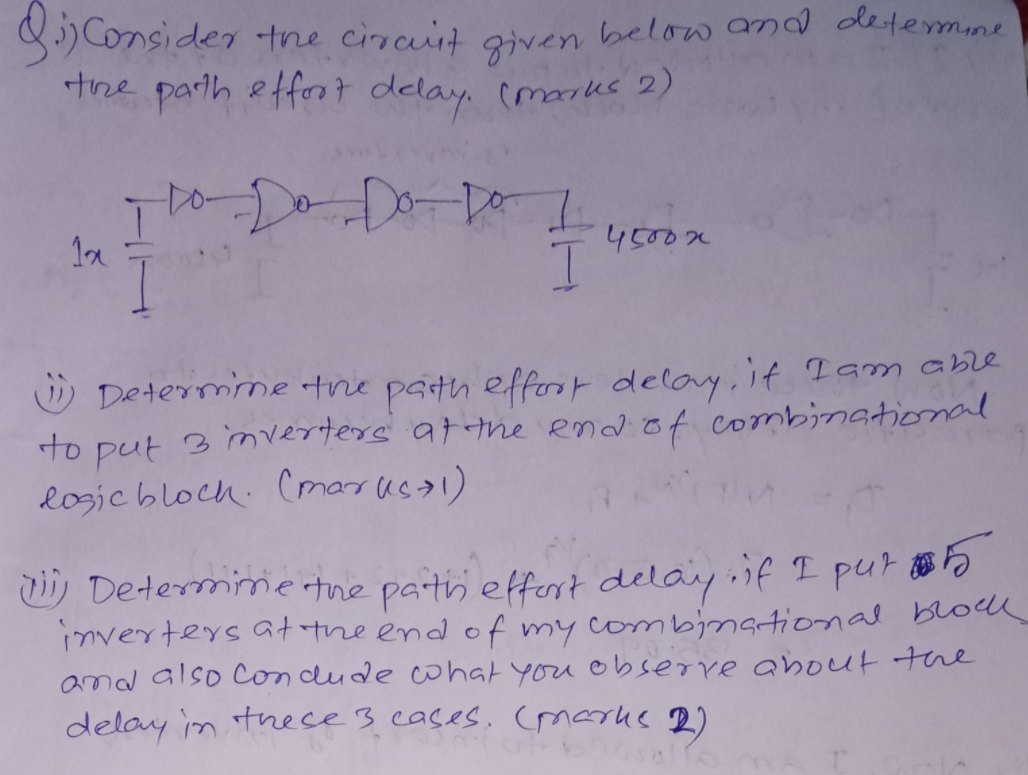 Q. i) Consider the circuit given below and determine
the path effort delay. (marks 2)
1x
4500x
ii) Determine the path effort delay, if I am able
to put 3 inverters at the end of combinational
logic block. (marks→1)
iii) Determine the path effort delay, if I put 5
inverters at the end of my combinational block
and also conclude what you observe about the
delay in these 3 cases. (marks 2)